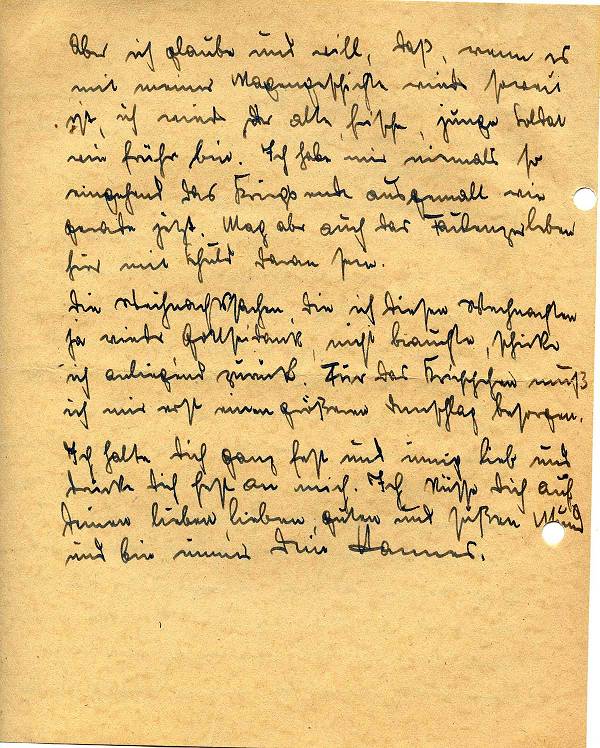 Aber ich glaube und will, daß, wenn es
mit meiner Magengeschichte wieder soweit
ist, ich wieder der alte, frische, junge Soldat
wie früher bin. Ich habe mir niemals so
eingehend das Kriegsende ausgemalt wie
gerade jetzt. Mag aber auch das
hier mit Schuld daran sein.
Die Weihnachtssachen, die ich diesen Weihnachten
ja wieder Gottseidank nicht brauchte, schicke
ich anliegend zurück. Für das Kripplein muß
ich mir erst einen größeren Umschlag besorgen.
Ich halte Dich ganz fest und innig lieb und
drücke Dich fest an mich. Ich küsse Dich auf
Deinen lieben lieben, guten und süßen Mund
und bin immer Dein Hannes.